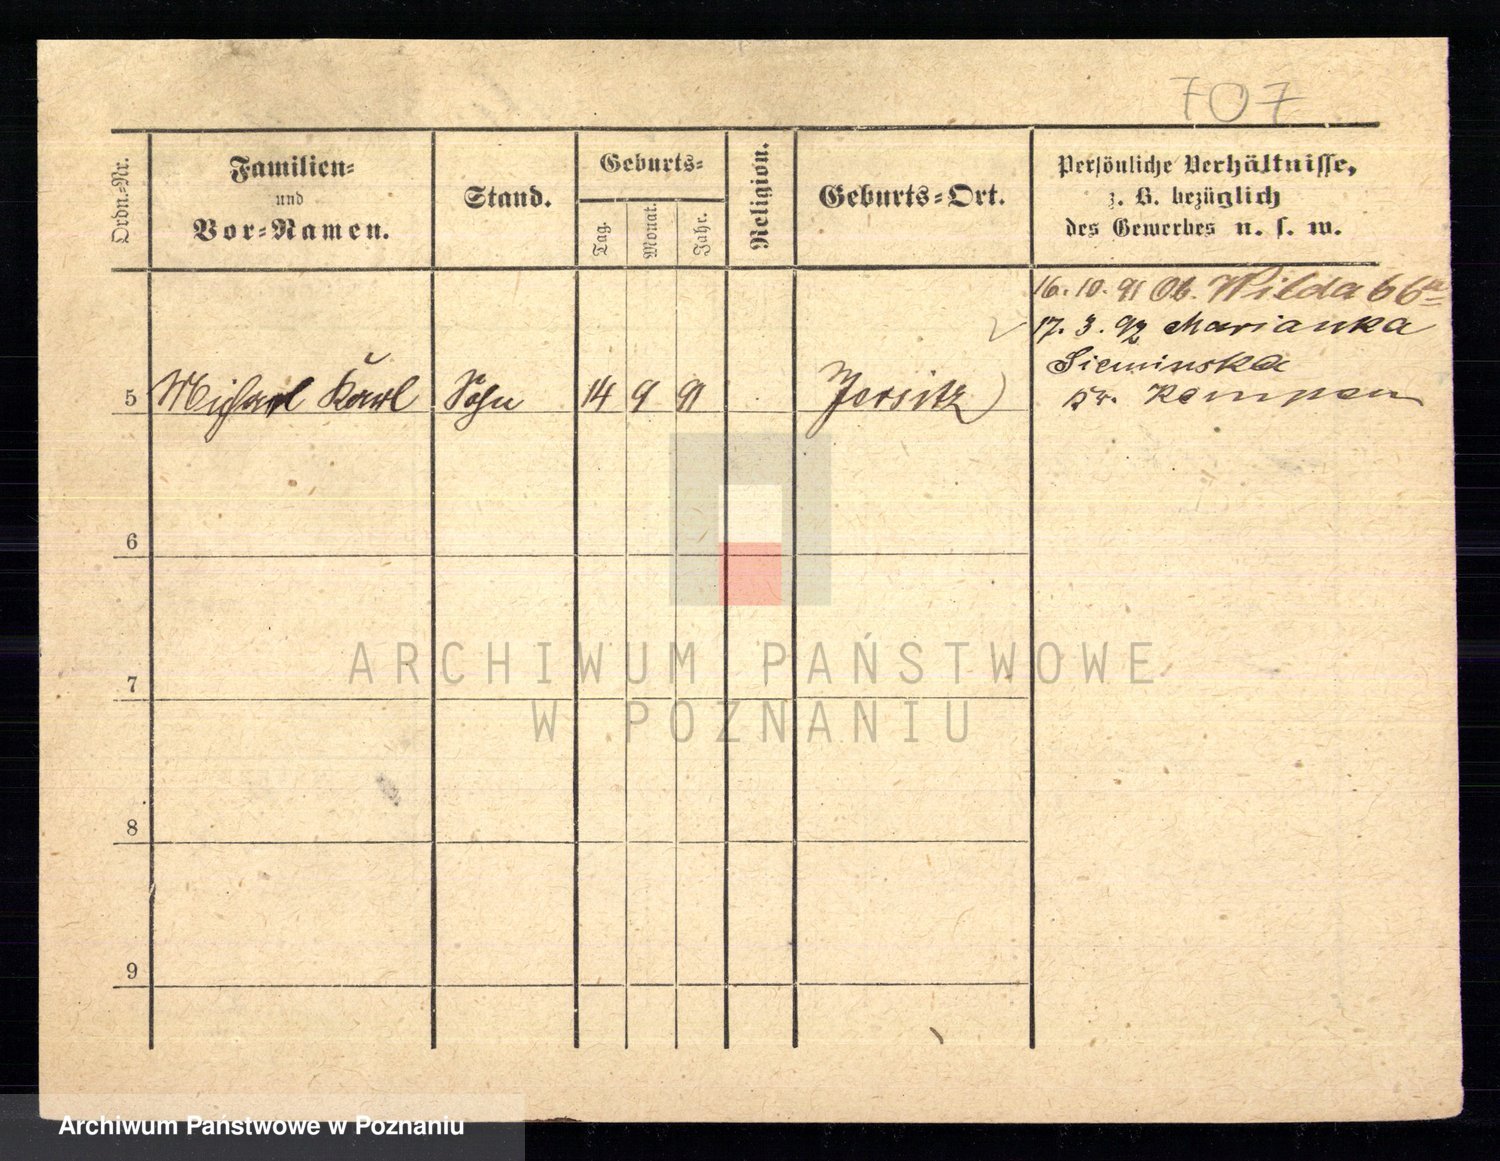 707
Ordn.-Nr.
Familien-
und
Vor-Namen.
Stand.
Geburts-
Tag.
Monat.
Jahr.
Religion.
Geburts-Ort.
Persönliche Verhältnisse,
z. B. bezüglich
des Gewerbes u. s. w.
16. 10. 91 Ob. Wilda 66a
17. 3. 92 Marianka
Sieminska
Kr. Kempen
5 Michael Karl Sohn 14 9 91 Jersitz
6
ARCHIWUM PAŃSTWOWE
7
W POZNANIU
8
9
Archiwum Państwowe w Poznaniu